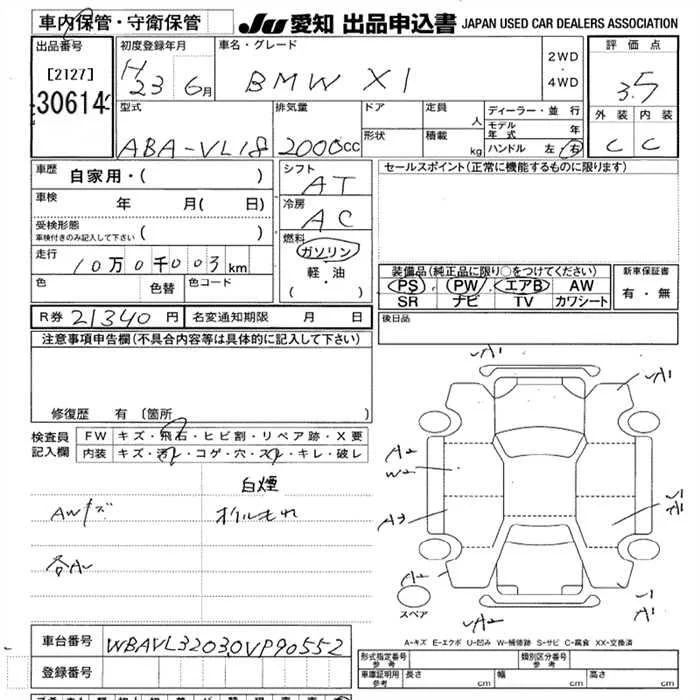 車内保管・守衛保管
JU 愛知 出品申込書 JAPAN USED CAR DEALERS ASSOCIATION
出品番号
[2127]
30614
初度登録年月
H 23 6月
車名・グレード
BMW X1
2WD
・
4WD
評価点
3.5
外装 内装
C C
型式
ABA-VL18
排気量
2000cc
ドア
形状
定員 人
積載 kg
ディーラー・並行
モデル年式 年
ハンドル 左・右
車歴 自家用・( )
車検 年 月( 日)
受検形態
車検付きのみ記入して下さい ( )
走行 10万0千003km
色 色替 色コード
シフト
AT
冷房
AC
燃料
ガソリン
軽・油
( ・ )
セールスポイント(正常に機能するものに限ります)
装備品(純正品に限り○をつけてください)
PS PW エアB AW
SR ナビ TV カワシート
新車保証書
有・無
R券 21340円 名変通知期限 月 日
後日品
注意事項申告欄(不具合内容等は具体的に記入して下さい)
修復歴 有 〔箇所 〕
検査員記入欄
FW キズ・飛石・ヒビ割・リペア跡・X要
内装 キズ・汚レ・コゲ・穴・スレ・キレ・破レ
白煙
AWキズ オイルもれ
A1
A1
A2
W2
A3
A2
A1
スペア
A-キズ E-エクボ U-凹み W-補修跡 S-サビ C-腐食 XX-交換済
車台番号 WBAVL32030VP90552
登録番号
形式指定番号 参考
類別区分番号 参考
車庫証明用 参考 長さ cm 幅 cm 高さ cm